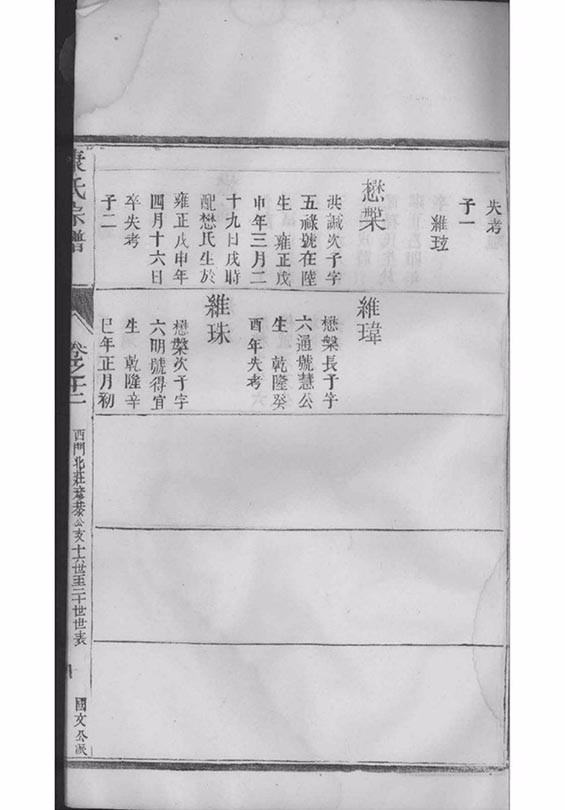 失考
子一
維玹
懋槼
洪誠次子字
五祿號在陸
生 雍正戊
申年三月二
十九日戌時
配懋氏生於
雍正戊申年
四月十六日
卒失考
子二
維瑋
懋槼長子字
六通號慧公
生 乾隆癸
酉年失考
維珠
懋槼次子字
六明號得宜
生 乾隆辛
巳年正月初
氏宗譜
卷之
西門北莊
公支十六世至二十世世表
國文公派